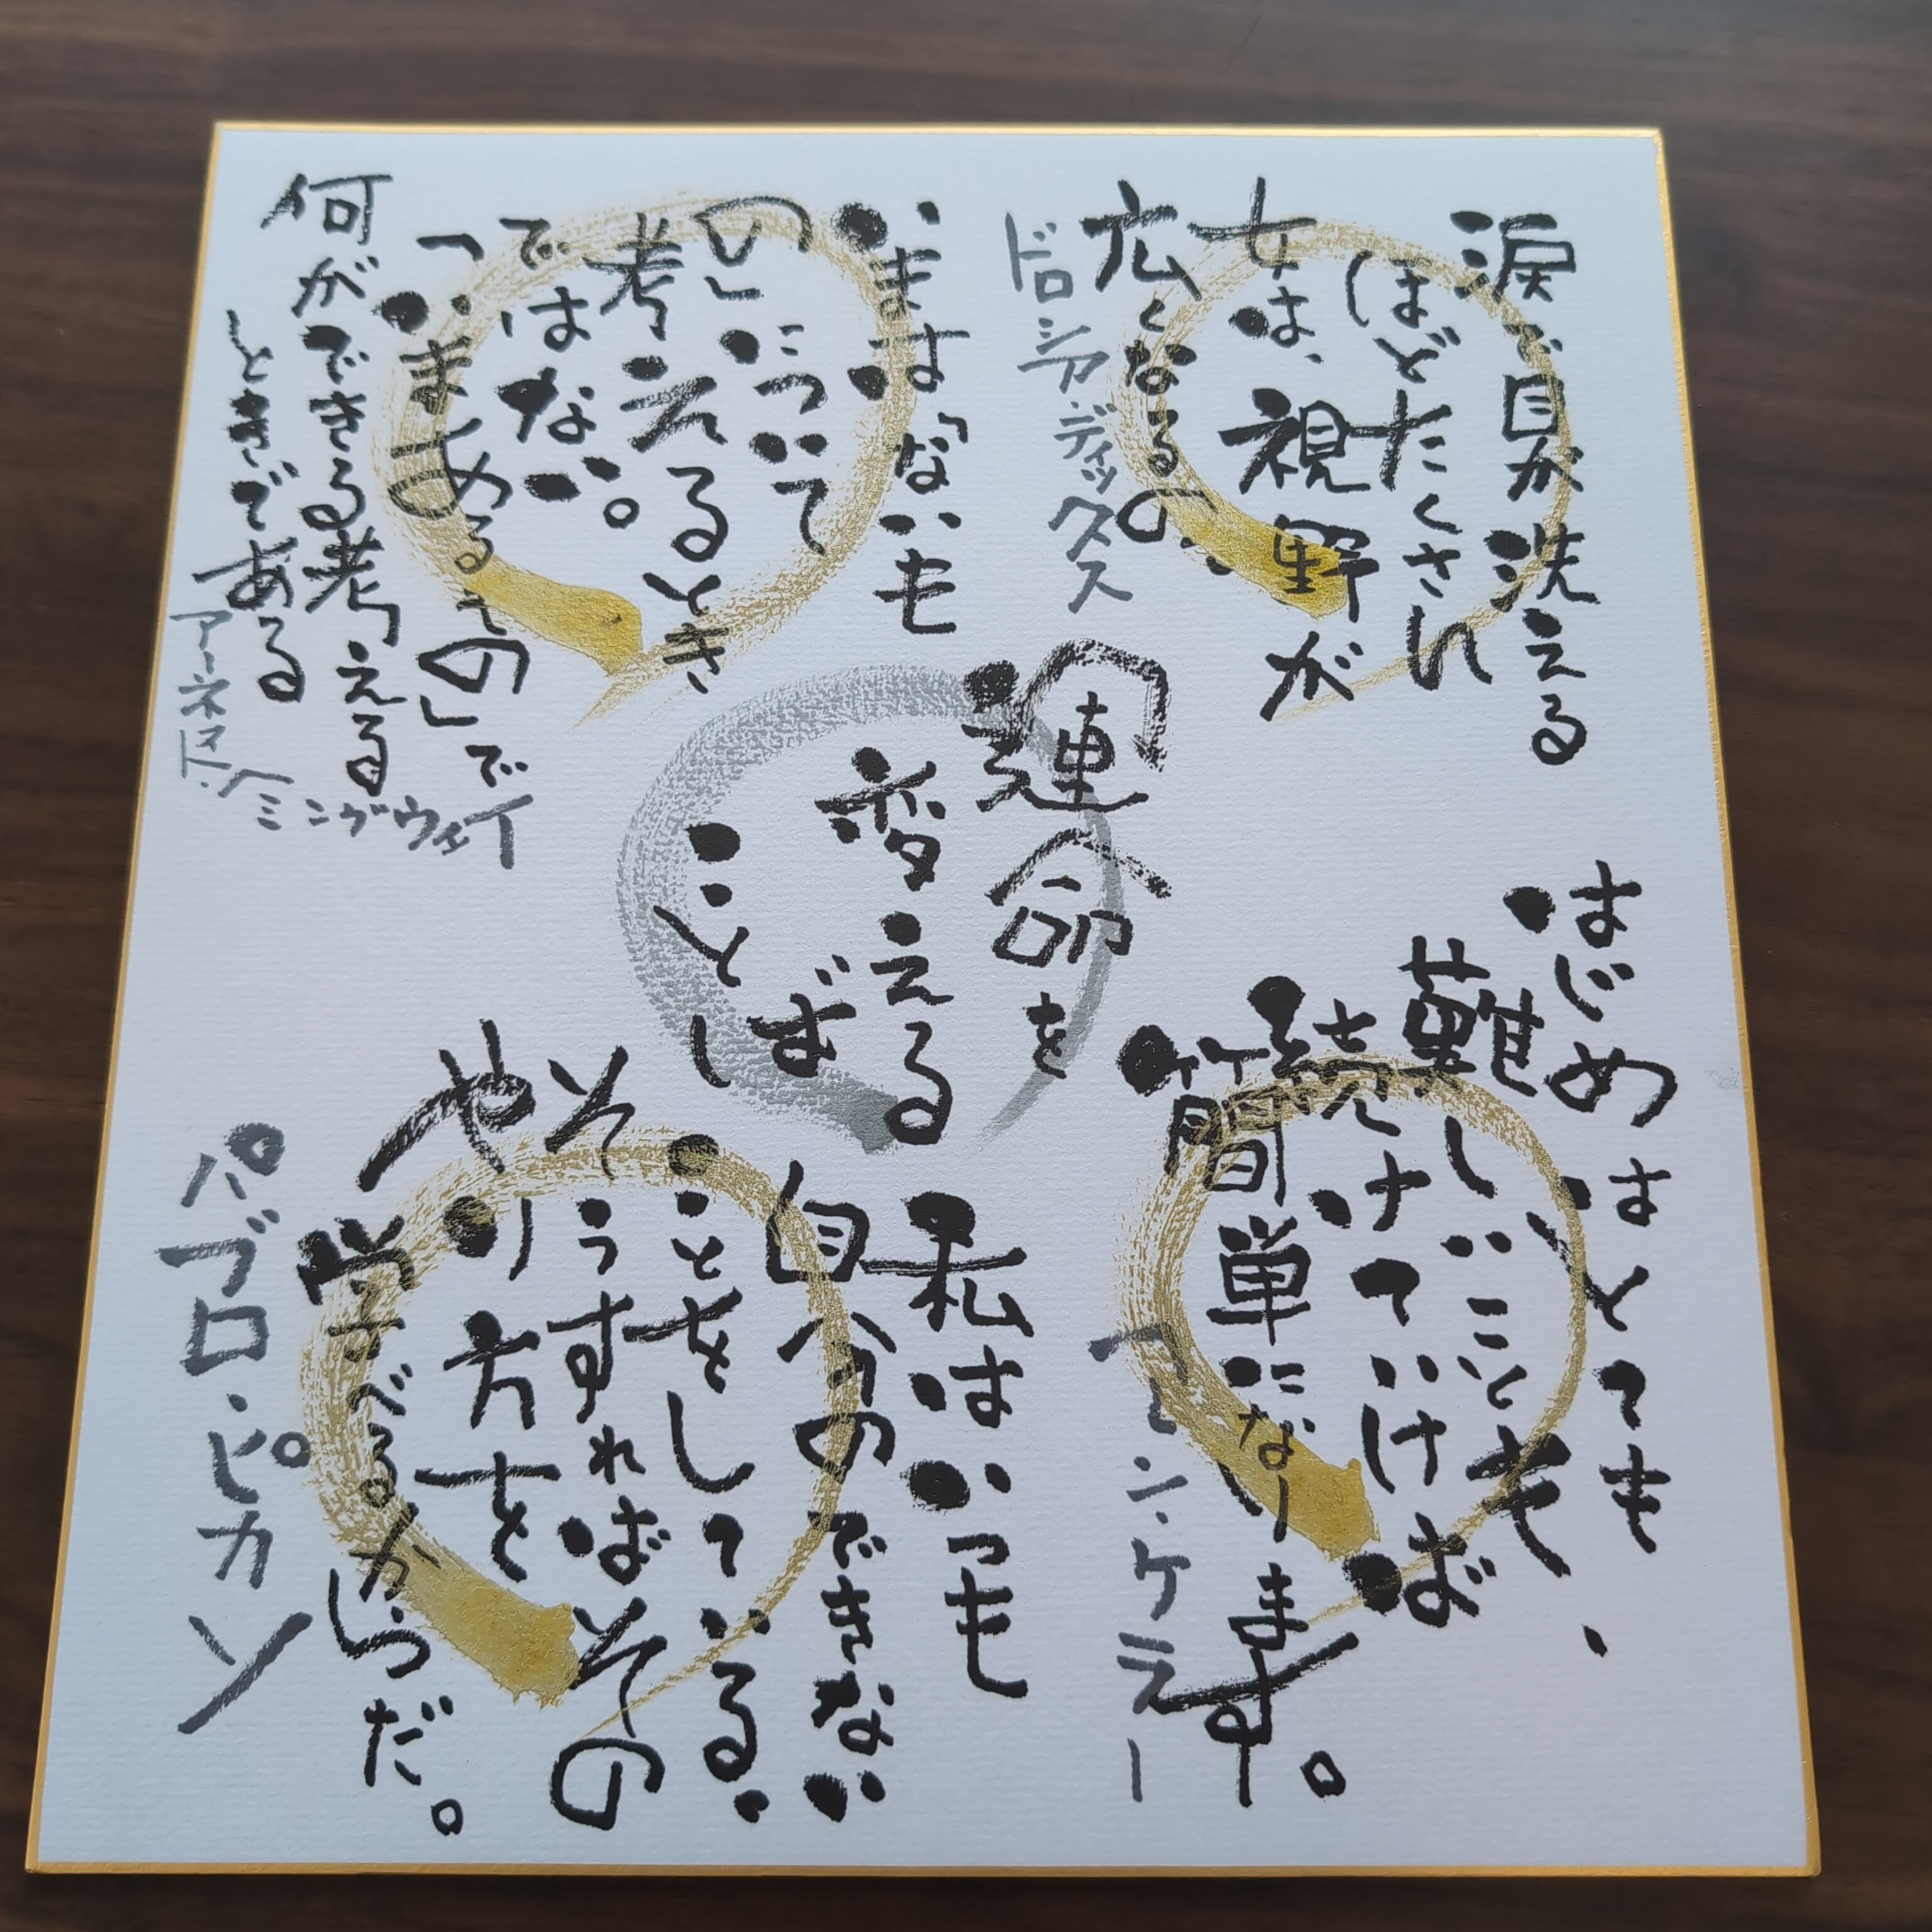 涙で目が洗える
ほどたくさん
女は、視野が
広くなるの。
ドロシア・ディックス
いまは「ないも
の」について
考えるとき
ではない。
「いまあるもの」で
何ができる考える
ときである
アーネスト・ヘミングウェイ
『運命を
変える
ことば』
はじめはとても
難しいことも、
続けていけば
簡単になります。
ヘレン・ケラー
私はいつも
自分のできない
ことをしている。
そうすればその
やり方を
学べるからだ。
パブロ・ピカソ